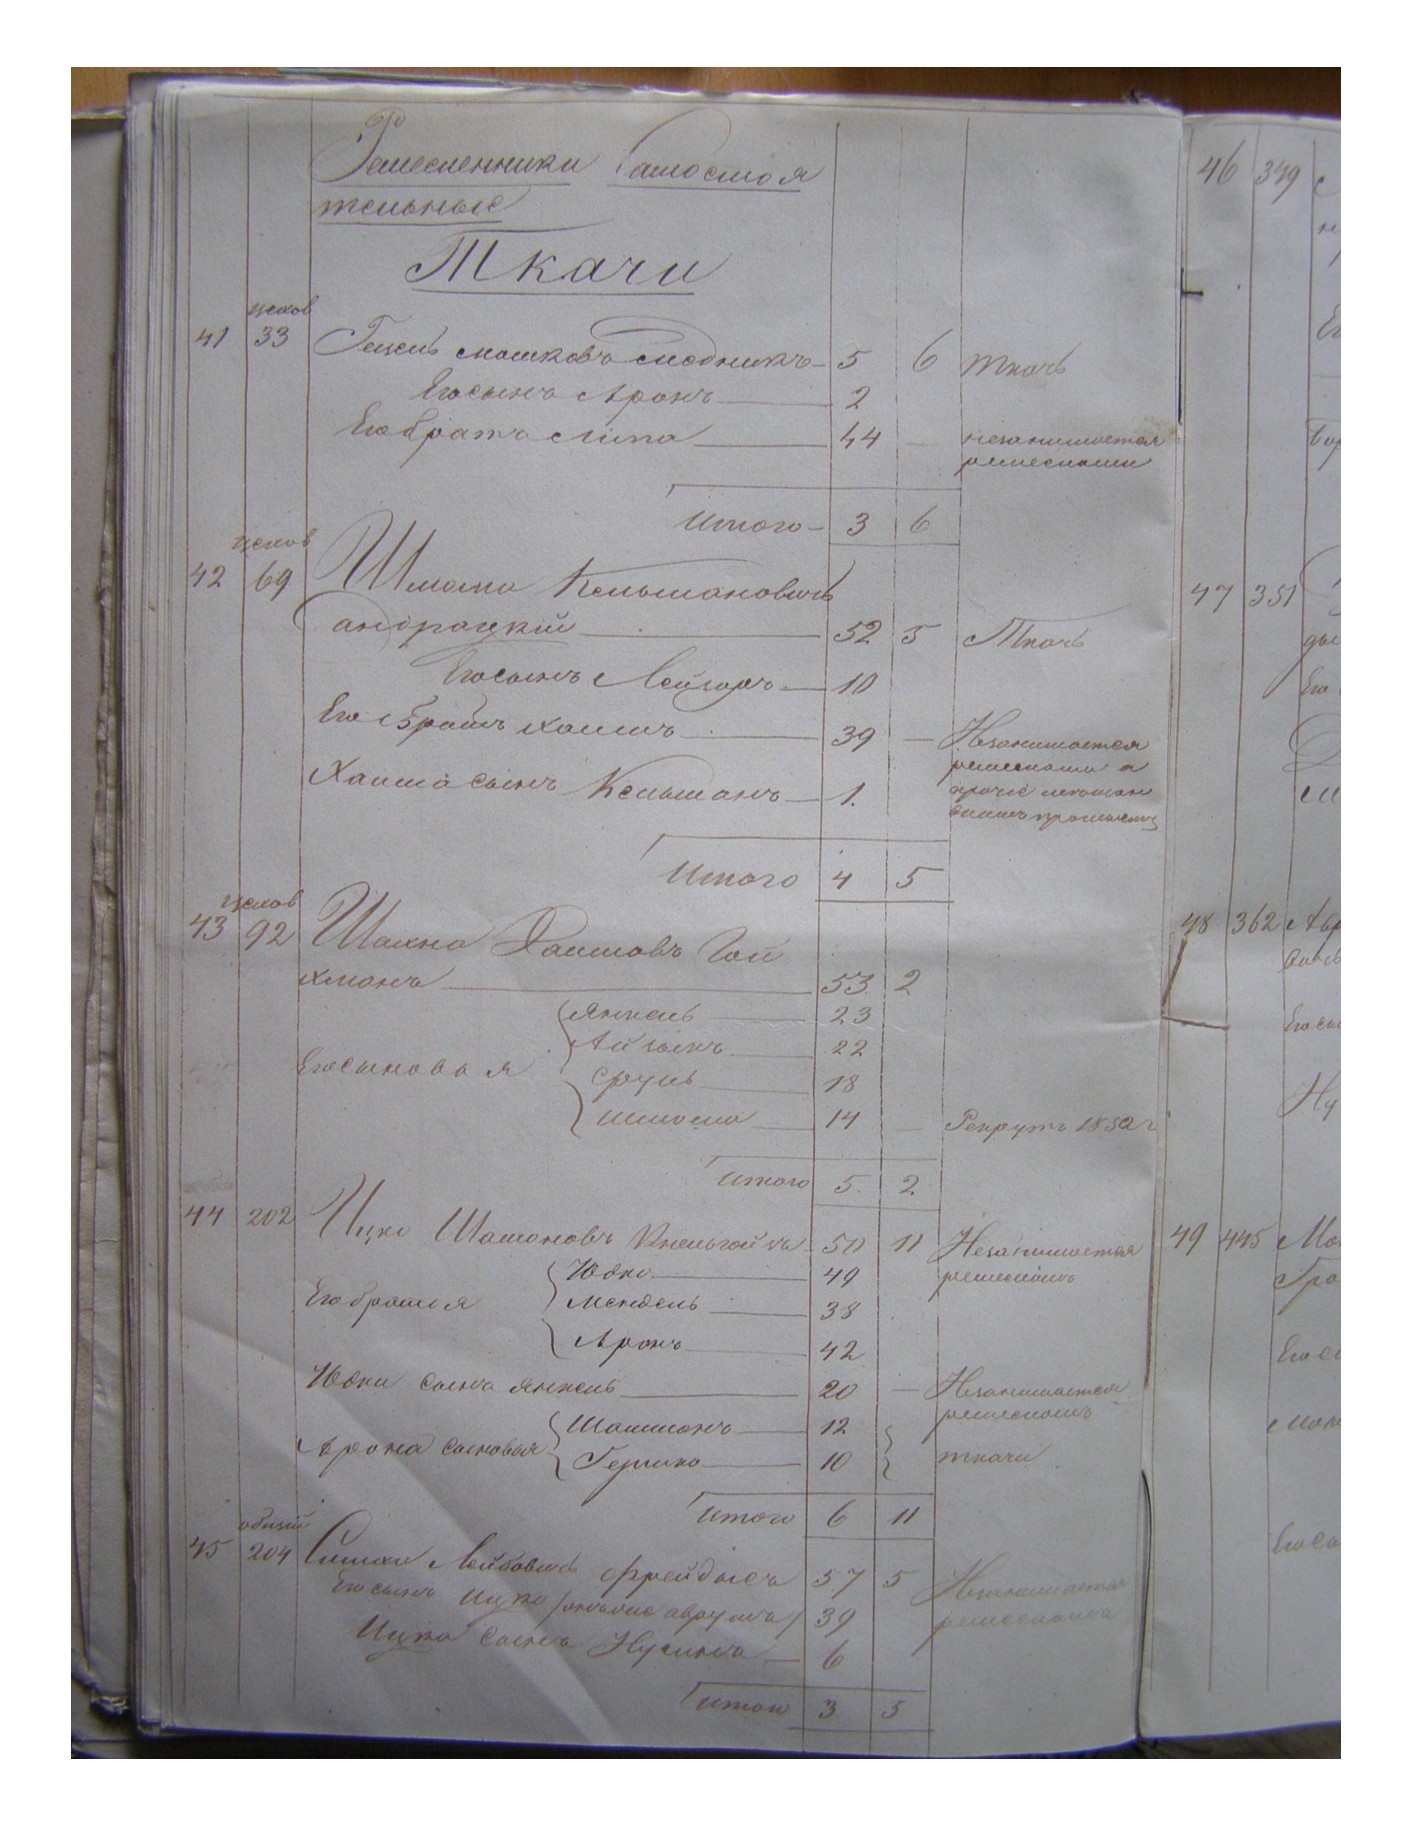 Ремесленники самостоя
тельные
Ткачи
цехов
41 33 Гецель Мошковъ Слюдникъ 5 6 ткачь
Его сынъ Аронъ 2
Его братъ Липа 44 — незанимается
ремесломъ
Итого 3 6
цехов
42 69 Шмома Кельмановичъ
андрацкий 52 5 Ткачь
Его сынъ Лейзоръ 10
Его братъ Хаимъ 39 — Незанимается
Хаима сынъ Кельманъ 1. ремесломъ а
прочие
Итого 4 5
цехов
43 92 Шахно Хаимовъ Гой
хманъ 53 2
Янкель 23
Айзикъ 22
Его сыновья
Сруль 18
Шмома 14 — Рекрутъ 1852 г
Итого 5. 2
44 202 Ицко Шамоновъ 50 11 Незанимается
Юдко 49 ремесломъ
Его братья Мендель 38
Аронъ 42
Юдки сынъ Янкель 20 — Незанимается
ремесломъ
Шаммонъ 12
Арона сыновья
Гершко 10 ткачи
Итого 6 11
общий
45 204 Симха Лейбовичъ Фрейдысъ 57 5 Незанимается
Его сынъ Ицко 39 ремесломъ
Ицка сынъ Нусинъ 6
Итого 3 5
46 349
47 351
Его
48 362 Авр
Его сы
Ну
49 445 Мо
Его с
Его сы